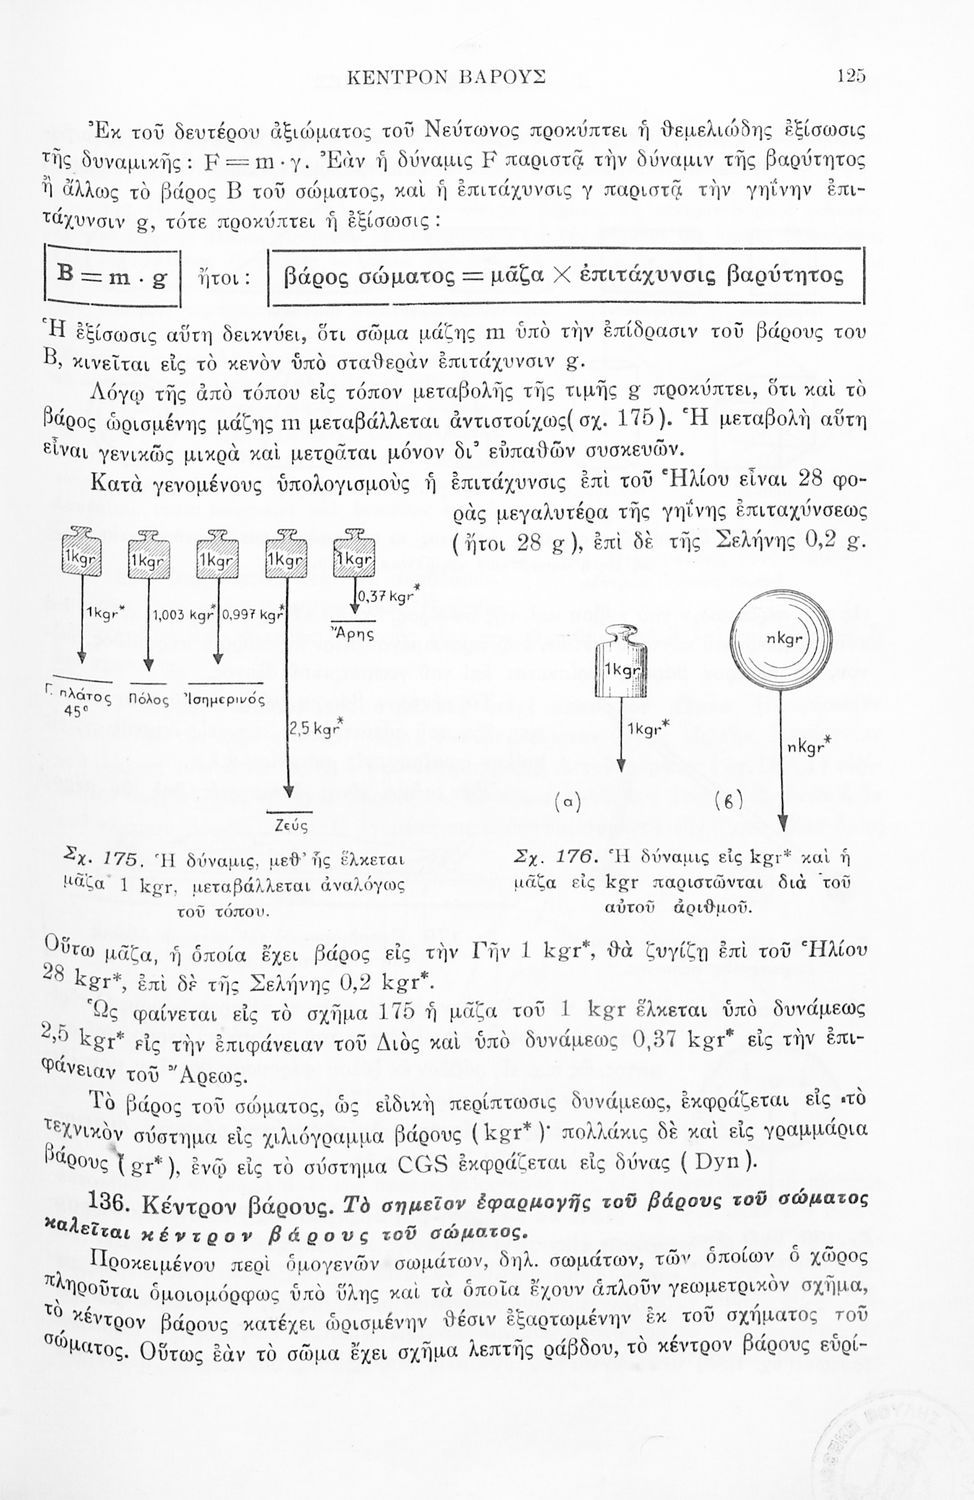 ΚΕΝΤΡΟΝ ΒΑΡΟΥΣ 125
Ἐκ τοῦ δευτέρου ἀξιώματος τοῦ Νεύτωνος προκύπτει ἡ θεμελιώδης ἐξίσωσις
τῆς δυναμικῆς : F = m · γ. Ἐὰν ἡ δύναμις F παριστᾷ τὴν δύναμιν τῆς βαρύτητος
ἢ ἄλλως τὸ βάρος B τοῦ σώματος, καὶ ἡ ἐπιτάχυνσις γ παριστᾷ τὴν γηΐνην ἐπι-
τάχυνσιν g, τότε προκύπτει ἡ ἐξίσωσις :
B = m · g ἤτοι : βάρος σώματος = μᾶζα X ἐπιτάχυνσις βαρύτητος
Ἡ ἐξίσωσις αὕτη δεικνύει, ὅτι σῶμα μάζης m ὑπὸ τὴν ἐπίδρασιν τοῦ βάρους του
B, κινεῖται εἰς τὸ κενὸν ὑπὸ σταθερὰν ἐπιτάχυνσιν g.
Λόγῳ τῆς ἀπὸ τόπου εἰς τόπον μεταβολῆς τῆς τιμῆς g προκύπτει, ὅτι καὶ τὸ
βάρος ὡρισμένης μάζης m μεταβάλλεται ἀντιστοίχως( σχ. 175 ). Ἡ μεταβολὴ αὕτη
εἶναι γενικῶς μικρὰ καὶ μετρᾶται μόνον δι' εὐπαθῶν συσκευῶν.
Κατὰ γενομένους ὑπολογισμοὺς ἡ ἐπιτάχυνσις ἐπὶ τοῦ Ἡλίου εἶναι 28 φο-
ρὰς μεγαλυτέρα τῆς γηΐνης ἐπιταχύνσεως
( ἤτοι 28 g ), ἐπὶ δὲ τῆς Σελήνης 0,2 g.
1kgr 1kgr 1kgr 1kgr 1kgr
1kgr* 1,003 kgr* 0,997 kgr* 0,37 kgr*
Ἄρης
Γ. πλάτος 45° Πόλος Ἰσημερινός
2,5 kgr*
Ζεύς
1kgr nkgr
1kgr* nkgr*
(α) (β)
Σχ. 175. Ἡ δύναμις, μεθ' ἧς ἕλκεται
μᾶζα 1 kgr, μεταβάλλεται ἀναλόγως
τοῦ τόπου.
Σχ. 176. Ἡ δύναμις εἰς kgr* καὶ ἡ
μᾶζα εἰς kgr παριστῶνται διὰ τοῦ
αὐτοῦ ἀριθμοῦ.
Οὕτω μᾶζα, ἡ ὁποία ἔχει βάρος εἰς τὴν Γῆν 1 kgr*, θὰ ζυγίζῃ ἐπὶ τοῦ Ἡλίου
28 kgr*, ἐπὶ δὲ τῆς Σελήνης 0,2 kgr*.
Ὡς φαίνεται εἰς τὸ σχῆμα 175 ἡ μᾶζα τοῦ 1 kgr ἕλκεται ὑπὸ δυνάμεως
2,5 kgr* εἰς τὴν ἐπιφάνειαν τοῦ Διὸς καὶ ὑπὸ δυνάμεως 0,37 kgr* εἰς τὴν ἐπι-
φάνειαν τοῦ Ἄρεως.
Τὸ βάρος τοῦ σώματος, ὡς εἰδικὴ περίπτωσις δυνάμεως, ἐκφράζεται εἰς τὸ
τεχνικὸν σύστημα εἰς χιλιόγραμμα βάρους ( kgr* )· πολλάκις δὲ καὶ εἰς γραμμάρια
βάρους ( gr* ), ἐνῷ εἰς τὸ σύστημα CGS ἐκφράζεται εἰς δύνας ( Dyn ).
136. Κέντρον βάρους. Τὸ σημεῖον ἐφαρμογῆς τοῦ βάρους τοῦ σώματος
καλεῖται κέντρον βάρους τοῦ σώματος.
Προκειμένου περὶ ὁμογενῶν σωμάτων, δηλ. σωμάτων, τῶν ὁποίων ὁ χῶρος
πληροῦται ὁμοιομόρφως ὑπὸ ὕλης καὶ τὰ ὁποῖα ἔχουν ἁπλοῦν γεωμετρικὸν σχῆμα,
τὸ κέντρον βάρους κατέχει ὡρισμένην θέσιν ἐξαρτωμένην ἐκ τοῦ σχήματος τοῦ
σώματος. Οὕτως ἐὰν τὸ σῶμα ἔχει σχῆμα λεπτῆς ράβδου, τὸ κέντρον βάρους εὑρί-